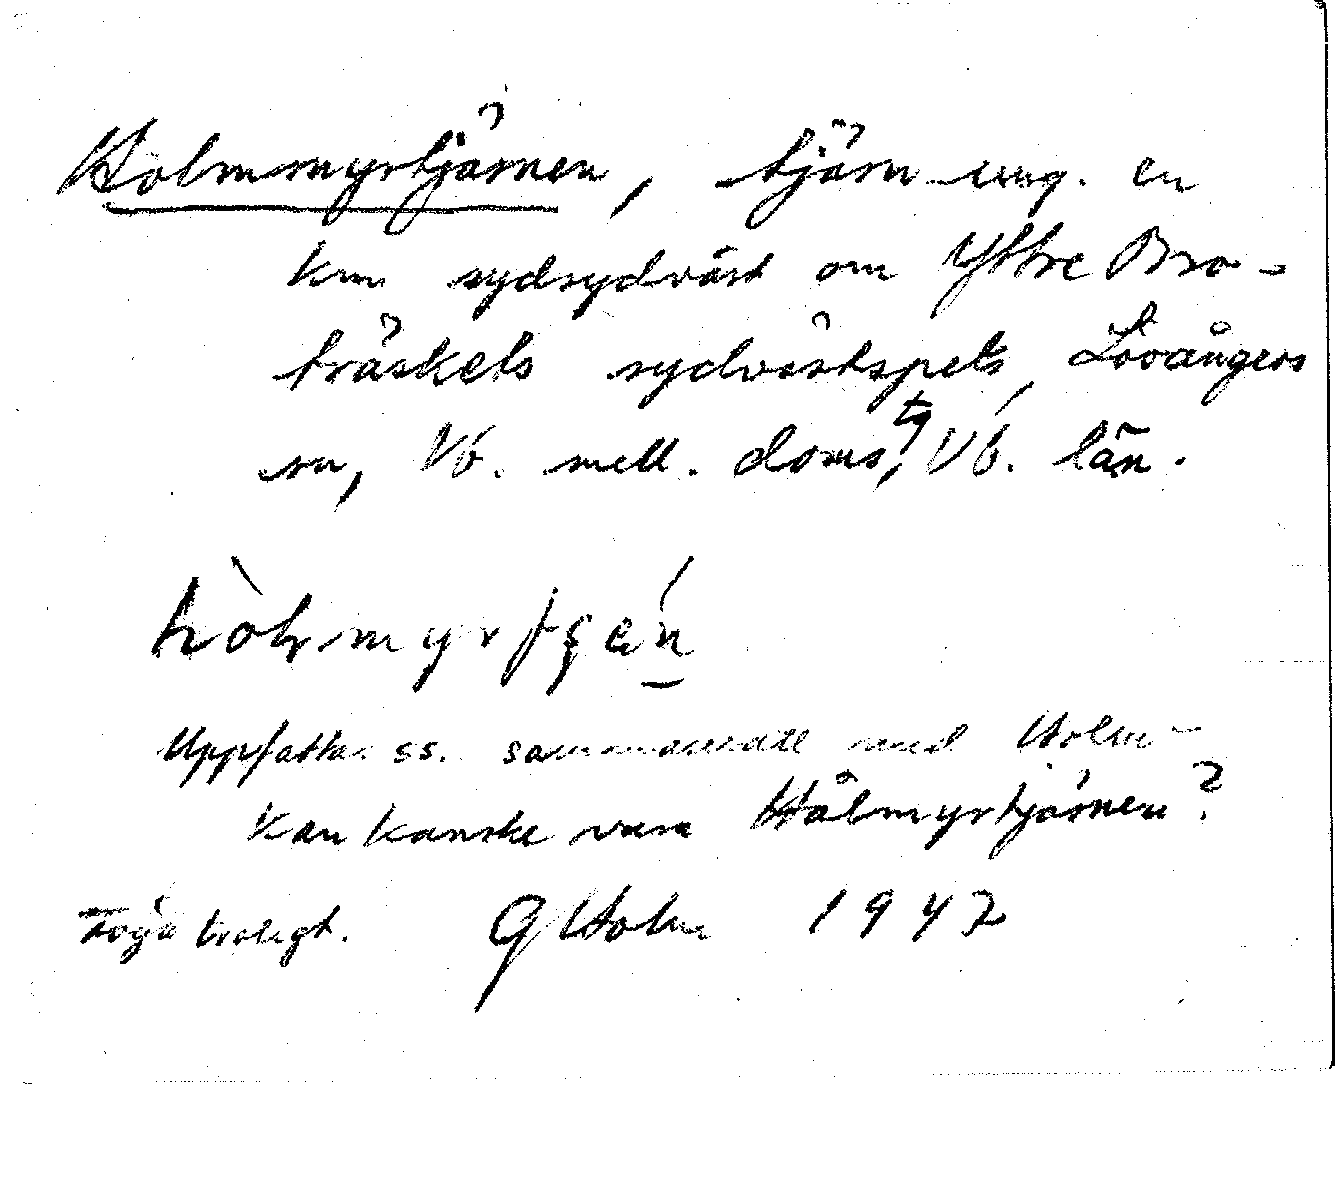 Holmmyrtjärnen, tjärn ung. en
km sydsydväst om Yttre Bro-
träskets sydvästspets, Lövångers
sn, Vb. mell. doms. tg, Vb. län.
Uppfattas ss. sammansatt med Holm-
Kan kanske vara Hålmyrtjärnen?
Föga troligt. G Holm 1947